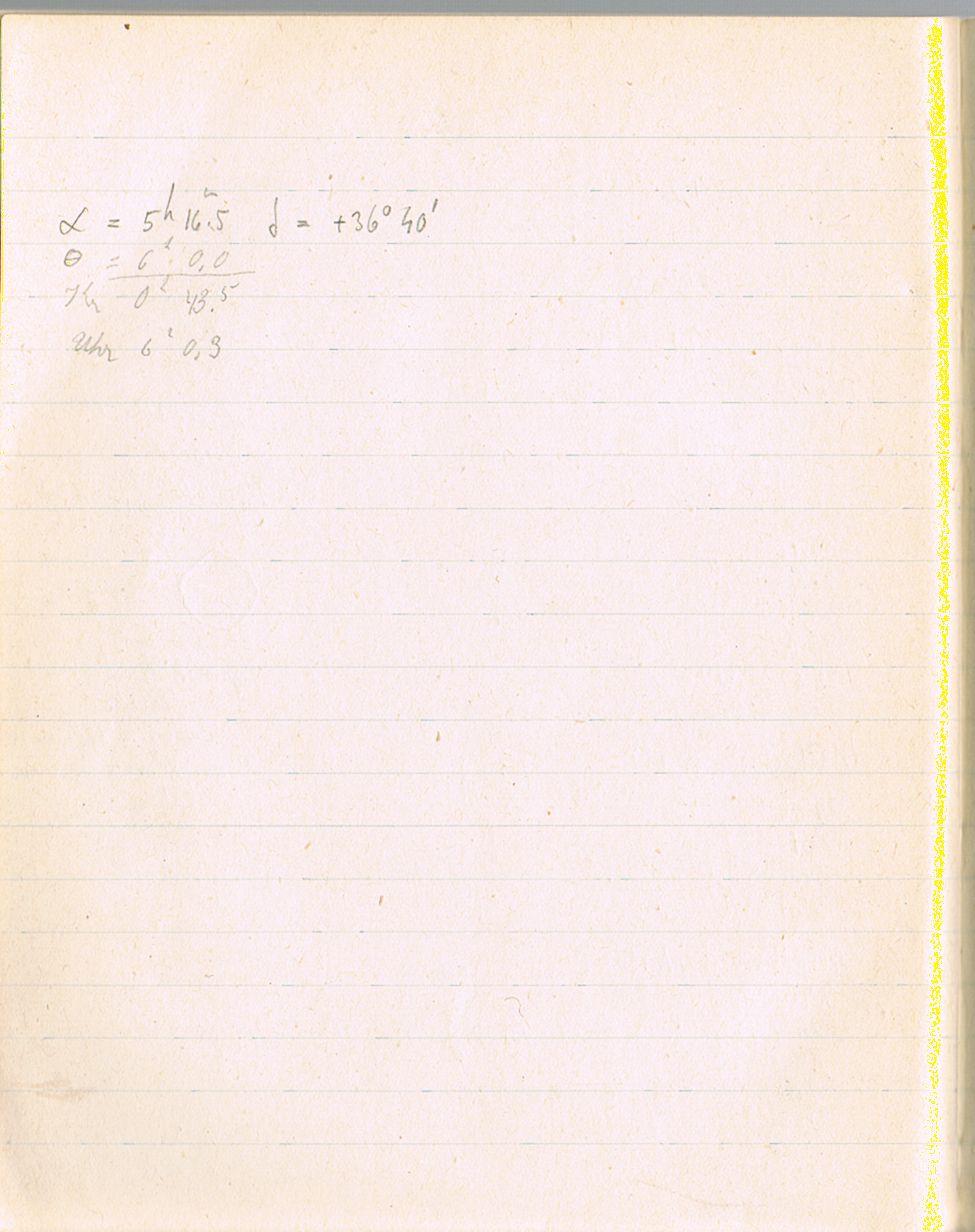 α = 5ʰ 16ᵐ.5 δ = +36° 40'
θ = 6ʰ 0,0
0ʰ 43.5
Uhr 6ʰ 0,3